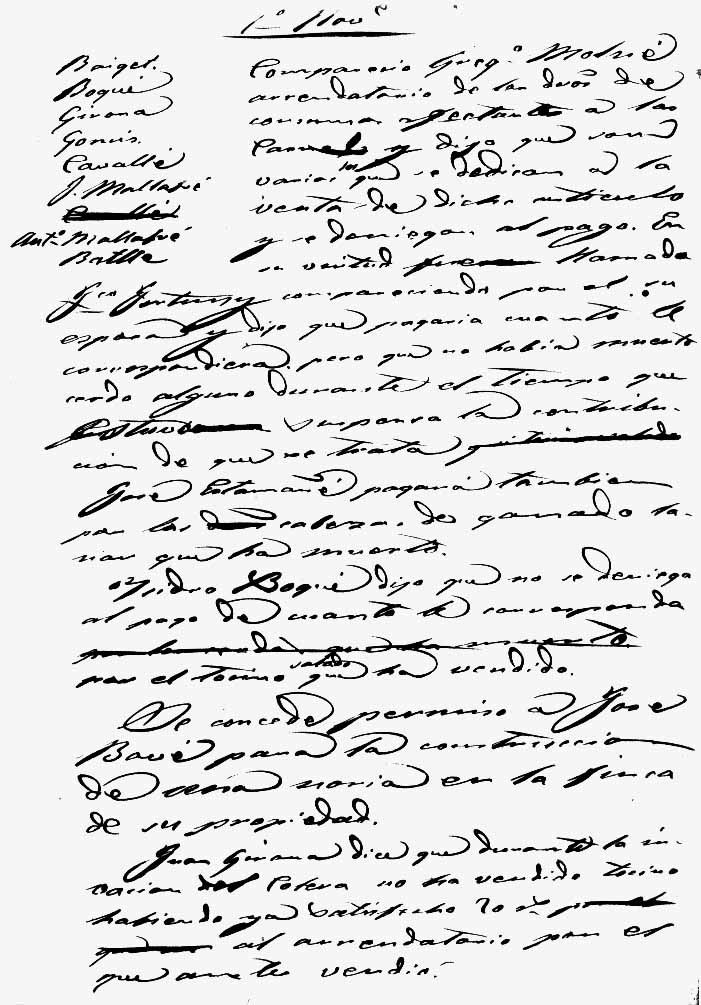 1º Nov.e
Baiget.
Boqué
Girona
Gomis.
Cavallé
J. Mallafré
Cavallé
Ant.º Mallafré
Batlle
Compareció Greg.º Molné
arrendatario de los dros de
consumos afectantes a las
Carnes y dijo que son
varios los que se dedican a la
venta de dicho articulo
y se deniegan al pago. En
su virtud fueron llamado
Fco Fortuny compareciendo por el su
esposa y dijo que pagaria cuanto le
correspondiera pero que no habia muerto
cerdo alguno durante el tiempo que
estuvo suspensa la contribu-
ción de que se trata
José Estamañé pagará tambien
por las dos cabezas de ganado la-
nar que ha muerto.
Isidro Boqué dijo que no se deniega
al pago de cuanto le corresponda
por la venda que ha muerto.
por el tocino salado que ha vendido.
Se concede permiso a José
Bové para la construccion
de una noria en la finca
de su propiedad.
Juan Girona dice que durante la in-
vacion del Colera no ha vendido tocino
habiendo ya satisfecho 20 r.s por el
al arrendatario por el
que antes vendió.